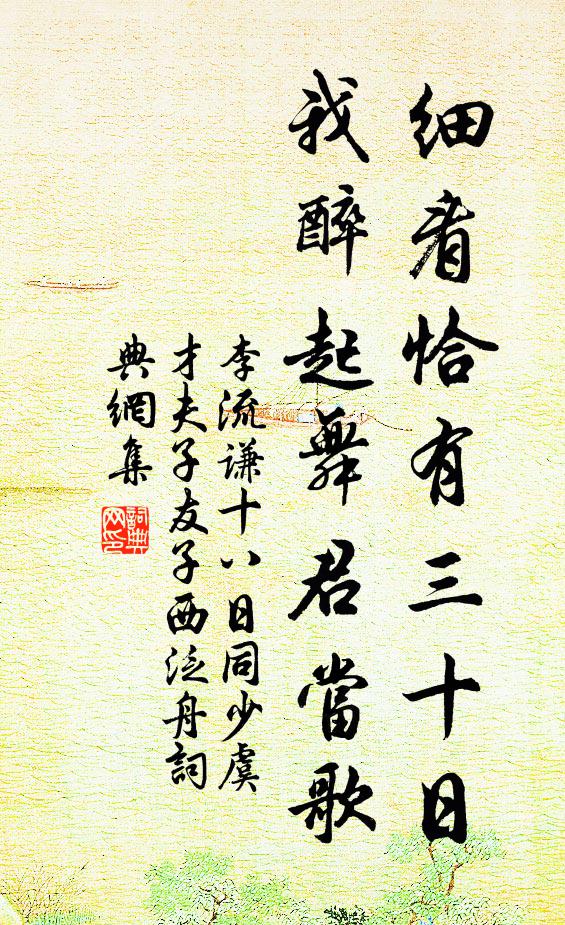 細看恰有三十日
我醉起舞君當歌
李流謙十八日同少虞
才夫子友子西泛舟詞
典網集
詞典
网印